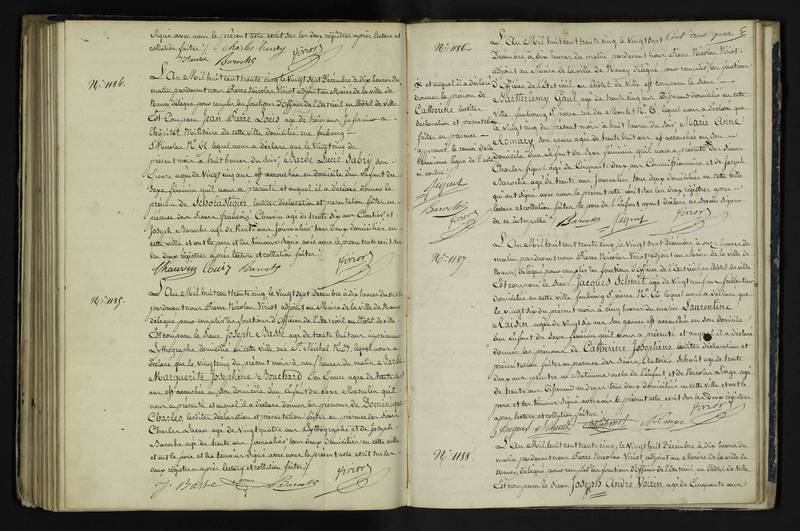 Signé avec nous le présent acte écrit sur les deux registres après lecture et
collation faites./.
Charles
Barocke Viriot
N° 1184.
L'An Mil huit cent trente cinq, le Vingt sept Décembre à dix heures du
matin, pardevant nous Pierre Nicolas Viriot, adjoint au Maire de la ville de
Nancy, délégué pour remplir les fonctions d'Officier de l'Etat civil, en l'hôtel de Ville
Est Comparu Jean Pierre Louis agé de trois ans Infirmier à
l'hôpital Militaire de cette ville domicilié au faubourg
St Nicolas N° 61. lequel nous a déclaré que le Vingt cinq du
présent mois à huit heures du soir, Barbe Lucie son
Epouse, agée de Vingt cinq ans est accouchée en son domicile d'un Enfant du
Sexe féminin qu'il nous a présenté et auquel il a déclaré donner le
prénom de Scholastique lesdites déclaration et présentation faites en
présence des Sieurs François Chauvin agé de trente six ans et
Joseph Barocke agé de trente ans journalier tous deux domiciliés en
cette ville et ont le père et les témoins Signé avec nous le présent acte écrit sur
les deux registres après lecture et collation faites./.
Chauvin Louis Barocke Viriot
N° 1185.
L'An Mil huit cent trente cinq, le Vingt sept Décembre à dix heures du matin
pardevant nous Pierre Nicolas Viriot, adjoint au Maire de la ville de Nancy
délégué pour remplir les fonctions d'Officier de l'Etat civil en l'hôtel de ville
Est comparu le Sieur Joseph Basse agé de trente huit ans imprimeur
Lythographe domicilié en cette ville rue St Michel lequel nous a
déclaré que le Vingt cinq du présent mois à neuf heures du matin
Marguerite Josephine Bouchard Son Epouse agée de trente
ans est accouchée en son domicile d'un Enfant du Sexe Masculin qu'il
nous a présenté et auquel il a déclaré donner les prénoms de Dominique
Charles, lesdites déclaration et présentation faites en présence des Sieurs
Charles agé de Vingt quatre ans Lythographe et de Joseph
Barocke agé de trente ans journalier tous deux domiciliés en cette ville
et ont le père et les témoins Signé avec nous le présent acte écrit sur les
deux registres après lecture et collation faites./.
J. Basse Barocke Viriot
N° 1186.
L'An Mil huit cent trente cinq, le Vingt sept
Décembre à dix heures du matin, pardevant nous Pierre Nicolas Viriot,
adjoint au Maire de la ville de Nancy délégué pour remplir les fonctions
d'Officier de l'Etat civil, en l'hôtel de ville est comparu le Sieur
Barthelemy Gaul, agé de trente cinq ans domicilié en cette
Ville faubourg St Pierre rue du N° 6. lequel nous a déclaré que
le Vingt cinq du présent mois à huit heures du soir Marie Anne
Romary Son Epouse agée de trente cinq ans est accouchée en son
domicile d'un Enfant du Sexe féminin, qu'il nous a présenté des Sieurs
Charles agé de Cinquante deux ans Commissionnaire et de Joseph
Barocke agé de trente ans, journalier tous deux domiciliés en cette ville
qui ont Signé avec nous le présent acte écrit sur les deux registres après
lecture et collation faites, le père de l'Enfant ayant déclaré ne Savoir Signer
de ce interpellé./.
Barocke Viriot
et auquel il a déclaré
donner le prénom de
Catherine lesdites
déclaration et présentation
faites en présence
approuvé le renvoi de
ci contre./.
Barocke
Viriot
N° 1187
L'An Mil huit cent trente cinq, le Vingt sept Décembre à onze heures du
matin, pardevant nous Pierre Nicolas Viriot adjoint au Maire de la ville de
Nancy, délégué pour remplir les fonctions d'Officier de l'Etat civil en l'hôtel de ville
Est comparu le Sieur Jacques Schmit agé de Vingt neuf ans
domicilié en cette ville faubourg St Pierre N° lequel nous a déclaré que
le Vingt six du présent mois, à cinq heures du matin Laurentine
Raidin agée de Vingt dix ans, Son Epouse est accouchée en Son domicile
d'un Enfant du Sexe féminin qu'il nous a présenté et auquel il a déclaré
donner les prénoms de Catherine Josephine lesdites déclaration et
présentation faites en présence des Sieurs Antoine Schmit agé de trente
deux ans peintre en Batiment oncle de l'Enfant et de Nicolas agé
de trente ans tous deux domiciliés en cette ville et ont le
père et les témoins Signé avec nous le présent acte écrit sur les deux registres
après lecture et collation faites./.
Jacques Schmit Schmit Viriot
N° 1188.
L'An Mil huit cent trente cinq, le Vingt huit Décembre à dix heures du
matin pardevant nous Pierre Nicolas Viriot, adjoint au Maire de la ville de
Nancy, délégué pour remplir les fonctions d'Officier de l'Etat civil, en l'hôtel de Ville
Est comparu le Sieur Joseph André Voirin agé de Cinquante ans